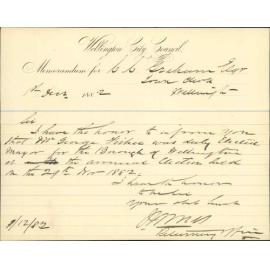 Wellington City Council.
Memorandum for C C Graham Esqr
Town Clerk
Wellington
1st Decr 1882
Sir
I have the honor to inform you
that Mr George Fisher was duly elected
Mayor for the Borough of Wellington
at the annual Election held
on the 29th Nov 1882.
I have the honor
to be Sir
Your obt Servt
Returning Officer
1/12/82